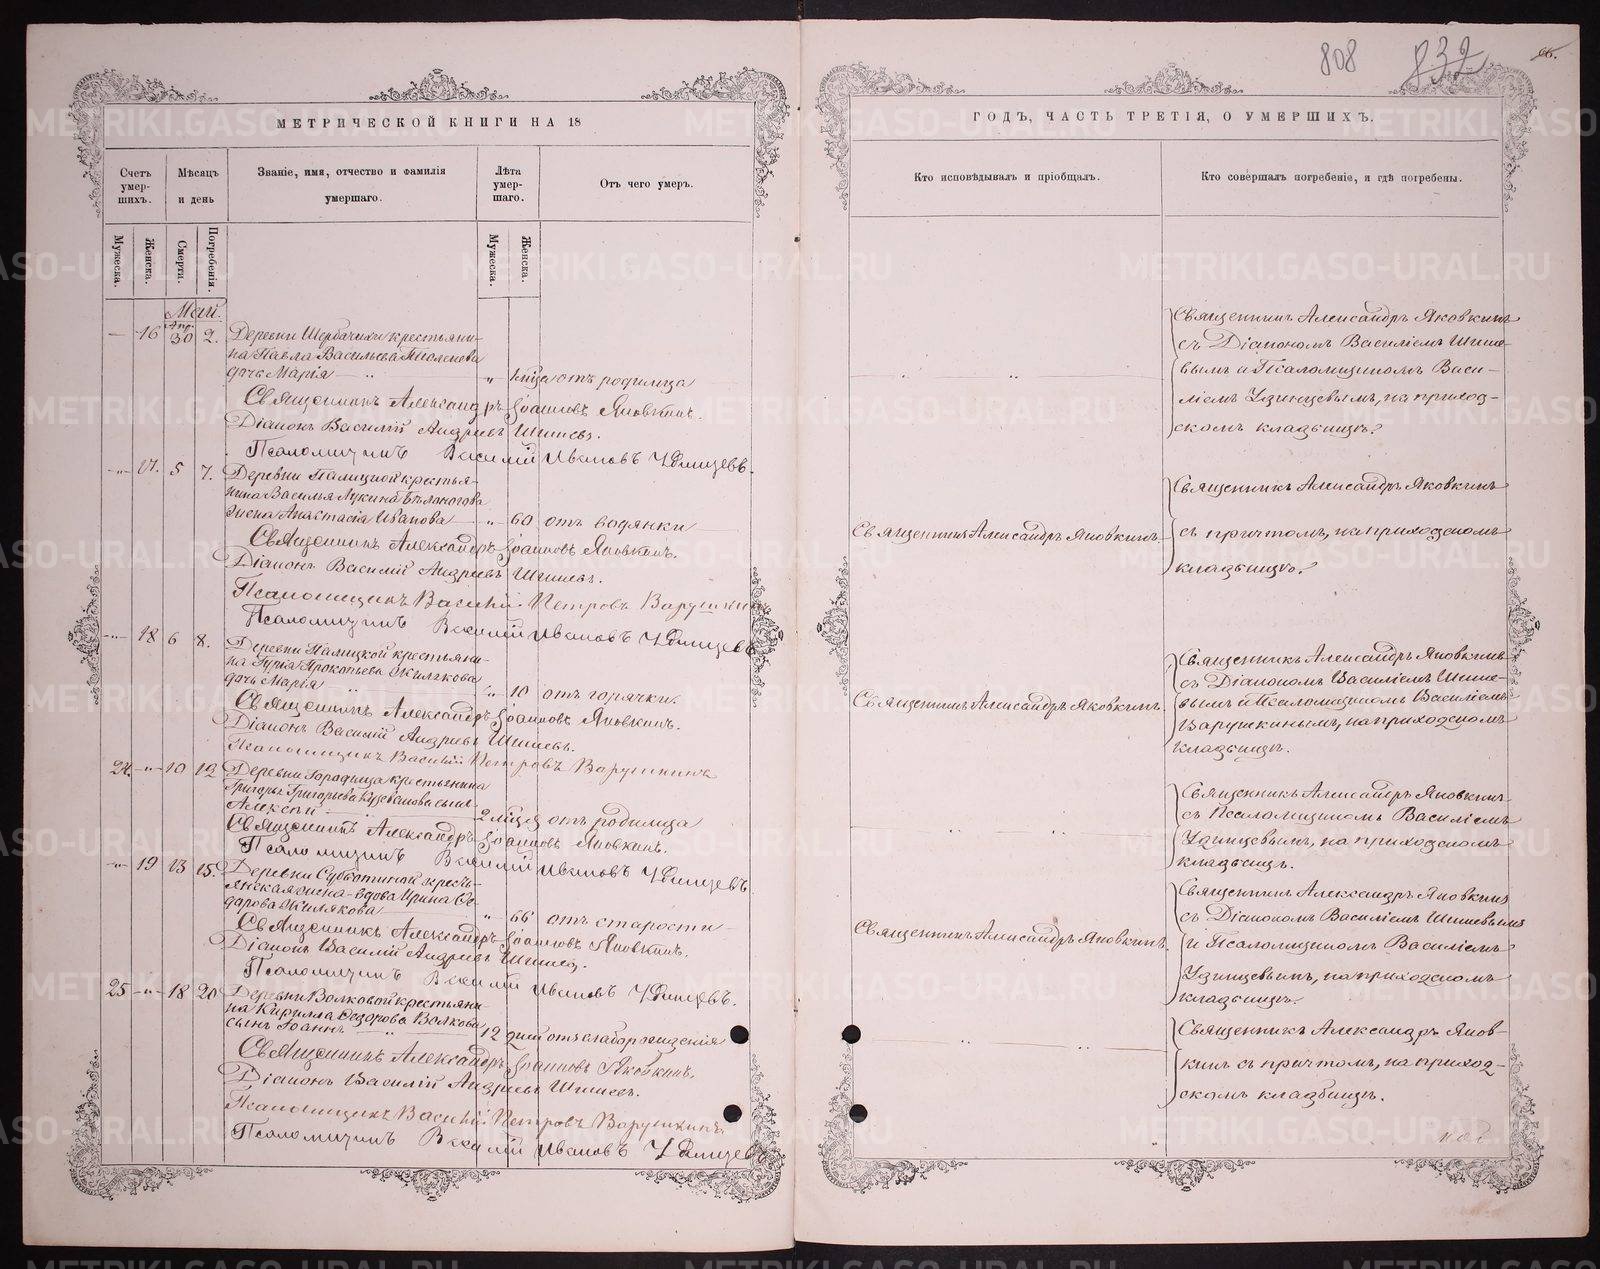 808 832 66.
МЕТРИЧЕСКОЙ КНИГИ НА 18
ГОДЪ, ЧАСТЬ ТРЕТІЯ, О УМЕРШИХЪ.
Счетъ умер-шихъ.
Мѣсяцъ и день
Званіе, имя, отчество и фамилія умершаго.
Лѣта умер-шаго.
Отъ чего умеръ.
Кто исповѣдывалъ и пріобщалъ.
Кто совершалъ погребеніе, и гдѣ погребены.
Мужеска.
Женска.
Смерти.
Погребенія.
Мужеска.
Женска.
Май.
— 16 Апр. 30 2. Деревни Щербачихи крестьяни-
на Павла Васильева
дочь Марія — „ — „ отъ родимца
Священникъ Александръ Іоанновъ Яковкинъ.
Діаконъ Василій Андреевъ Шишевъ.
Псаломщикъ Василій Ивановъ Удинцевъ.
Священникъ Александръ Яковкинъ
съ Діакономъ Василіемъ Шише-
вымъ и Псаломщикомъ Васи-
ліемъ Удинцевымъ, на приход-
скомъ кладбищѣ.
—„— 17. 5 7. Деревни Палицкой крестья-
нина Василья Лукина Бѣлоногова
жена Анастасія Иванова — „ — 60 отъ водянки
Священникъ Александръ Іоанновъ Яковкинъ.
Діаконъ Василій Андреевъ Шишевъ.
Псаломщикъ Василій Петровъ Варушкинъ
Псаломщикъ Василій Ивановъ Удинцевъ
Священникъ Александръ Яковкинъ.
Священникъ Александръ Яковкинъ
съ причтомъ, на приходскомъ
кладбищѣ.
—„— 18 6 8. Деревни Палицкой крестьяни-
на Гурія Прокопьева Жилякова
дочь Марія „ „ 10 отъ горячки.
Священникъ Александръ Іоанновъ Яковкинъ.
Діаконъ Василій Андреевъ Шишевъ.
Псаломщикъ Василій Петровъ Варушкинъ
Священникъ Александръ Яковкинъ.
Священникъ Александръ Яковкинъ
съ Діакономъ Василіемъ Шише-
вымъ и Псаломщикомъ Василіемъ
Варушкинымъ, на приходскомъ
кладбищѣ.
24. —„— 10 12 Деревни Городища крестьянина
Григорья Григорьева сынъ
Алексѣй 2 отъ родимца
Священникъ Александръ Іоанновъ Яковкинъ.
Псаломщикъ Василій Ивановъ Удинцевъ.
Священникъ Александръ Яковкинъ
съ Псаломщикомъ Василіемъ
Удинцевымъ, на приходскомъ
кладбищѣ.
—„— 19 13 15. Деревни Субботиной кресть-
янская жена-вдова Ирина Ѳе-
дорова Жилякова „ 66 отъ старости
Священникъ Александръ Іоанновъ Яковкинъ.
Діаконъ Василій Андреевъ Шишевъ.
Псаломщикъ Василій Ивановъ Удинцевъ.
Священникъ Александръ Яковкинъ.
Священникъ Александръ Яковкинъ
съ Діакономъ Василіемъ Шишевымъ
и Псаломщикомъ Василіемъ
Удинцевымъ, на приходскомъ
кладбищѣ.
25 —„— 18 20 Деревни Волковой крестьяни-
на Кирилла Ѳедорова Волкова
сынъ Іоаннъ — „ 12 дней отъ слаборожденія
Священникъ Александръ Іоанновъ Яковкинъ.
Діаконъ Василій Андреевъ Шишевъ.
Псаломщикъ Василій Петровъ Варушкинъ.
Псаломщикъ Василій Ивановъ Удинцевъ
Священникъ Александръ Яков-
кинъ съ причтомъ, на приход-
скомъ кладбищѣ.
METRIKI.GASO-URAL.RU